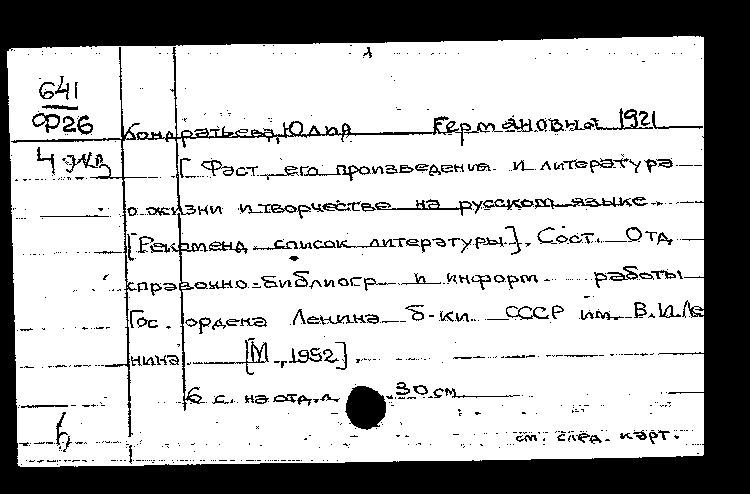 641
Ф26
Кондратьева, Юлия Германовна 1921
4 экз
[ Фаст, его произведения и литература
о жизни и творчестве на русском языке.
[Рекоменд. список литературы]. Сост. Отд.
справочно-библиогр и информ. работы
Гос. ордена Ленина б-ки СССР им. В.И.Ле
нина [М., 1952].
6 с. на отд. л. 30 см
см. след. карт.